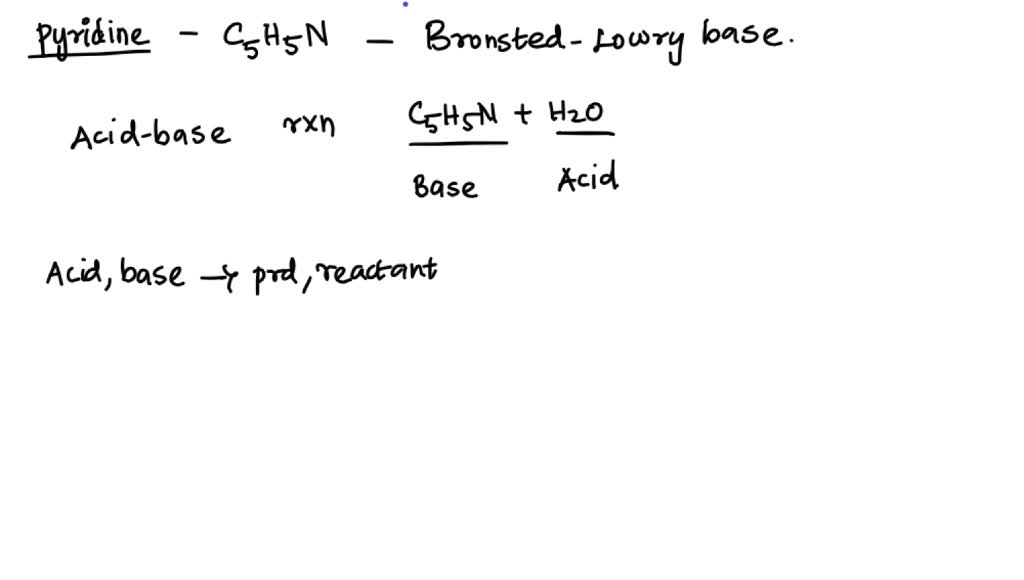 Pyridine - C5H5N - Bronsted-Lowry base.
Acid-base rxn C5H5N + H2O
Base Acid
Acid, base → prd, reactant